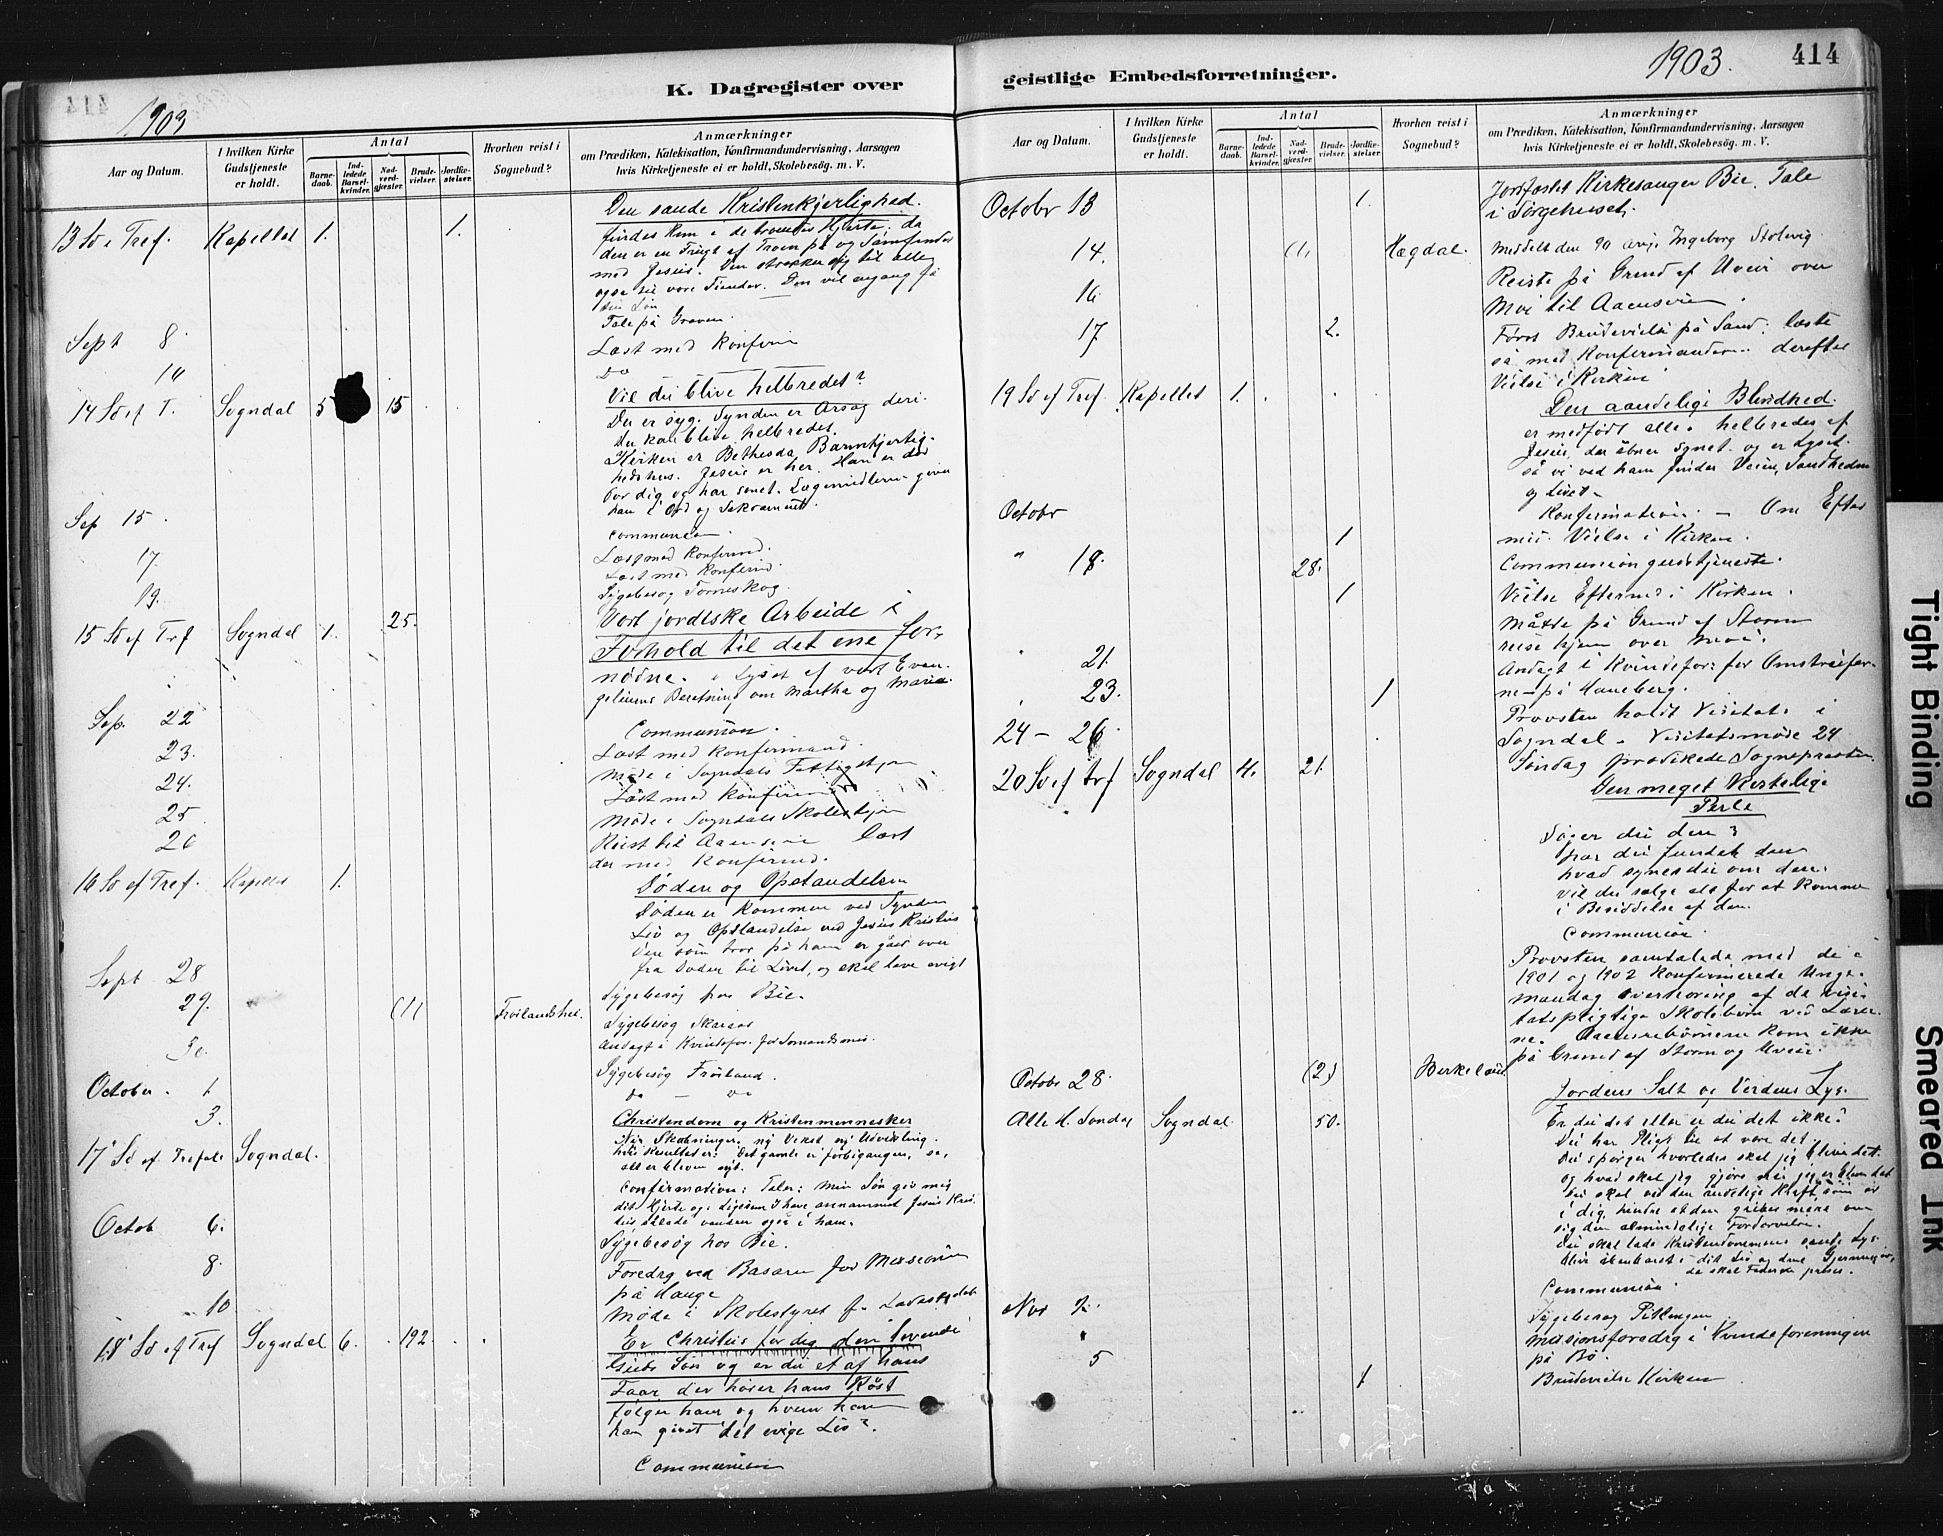 414
1903
K. Dagregister over
Aar og Datum.
I hvilken Kirke Gudstjeneste er holdt.
Antal
Barnedaab.
Indledede Barselkvinder.
Nadverdgjester.
Brudevielser.
Jordfæstelser.
Hvorhen reist i Sognebud?
Anmærkninger
om Prædiken, Katekisation, Konfirmandundervisning, Aarsagen
hvis Kirketjeneste ei er holdt, Skolebesög. m. V.
Den sande Kristenkjerlighed.
13 Sø e Tref. Kapellet 1. 1.
findes kun i de troendes Hjerte, da
den er en Frugt af Troen på og Samfundet
med Jesus. Den strækker sig til alle
også til vore Fiender. Den vil engang få
sin Løn
Tale på Graven.
Sept 8 Læst med Konfirm
14 Do
Vil du blive helbredet?
14 Sø ef T. Sogndal 5 15
Du er syg. Synden er Årsag deri.
Du kan blive helbredet.
Kirken er Bethesda, Barmhjertig-
hedshus. Jesus er her. Han er død
for dig og har sonet. Lægemidlerne giver
han i Ord og Sakrament.
Communion.
Sep 15. Læst med Konfirmd.
17. Læst med Konfirmd.
19. Sygebesøg Torneskog.
15 Sø ef Trf Sogndal 1. 25.
Vort jordiske Arbeide i
Forhold til det ene for-
nødne. i Lyset af vort Evan-
geliums Beretning om Martha og Maria.
Communion.
Sep. 22 Læst med Konfirmand.
23. Møde i Sogndals Fattigstyre
24. Læst med Konfirmand
25. Møde i Sogndals Skolestyre
26 Reist til Aaensire læst
der med Konfirmd.
16 Sø ef Tref. Kapellet 1.
Døden og Opstandelsen
Døden er kommen ved Synden
Liv og Opstandelse ved Jesus Kristus
Den som tror på ham er gået over
fra Døden til Livet, og skal leve evigt
Sept 28 Sygebesøg hos Bie.
29. (1) Frøilandshei. Sygebesøg Skaraas
30. Andagt i Kvindefor. for Sømandsmis.
October. 1 Sygebesøg Frøiland.
3. Do — Do
Christendom og Kristenmennesker
17 Sø ef Trefol. Sogndal.
Ny Skabninger, ny Vekst ny Udvikling.
hvis Resultat er: Det gamle er forbigangen, se,
alt er bleven nyt.
Confirmation: Taler: Min Søn giv mig
dit Hjerte og: Ligesom I have annammet Jesus Kris-
tus således vandrer også i ham.
Octob 6. Sygebesøg hos Bie.
8. Foredrag ved Basaren for Missionen
på Hauge
10 Møde i Skolestyret
18 Sø ef Tref Sogndal 6. 192
Er Christus for dig den levende
Guds Søn og er du et af hans
Faar der hører hans Røst
følger ham og hvem han
har givet det evige Liv?
Communion
geistlige Embedsforretninger.
1903.
414
Aar og Datum.
I hvilken Kirke Gudstjeneste er holdt.
Antal
Barnedaab.
Indledede Barselkvinder.
Nadverdgjester.
Brudevielser.
Jordfæstelser.
Hvorhen reist i Sognebud?
Anmærkninger
om Prædiken, Katekisation, Konfirmandundervisning, Aarsagen
hvis Kirketjeneste ei er holdt, Skolebesög. m. V.
Octobr 13 1. Jordfæstet Kirkesanger Bie. Tale
i Sørgehuset.
14. (1) Hægdal. Meddelt den 90 årige Ingeborg Stolevig
16. Reiste på Grund af Uveir over
Moi til Aaensire.
17 2. Først Brudevielse på Sand: læste
så med Konfirmanderne derefter
Vielse i Kirken
19 Sø ef Tref. Kapellet 1.
Den aandelige Blindhed.
er medfødt alle. helbredes af
Jesus, der åbner Synet og er Lyset.
så vi ved ham finder Veien, Sandheden
og Livet.
Octobr Konfirmation. — Om Efter
1 mid. Vielse i Kirken.
" 18. 28. Communiongudstjeneste.
1 Vielse Eftermd i Kirken.
Måtte på Grund af Storm
reise hjem over Moi.
21. Andagt i Kvindefor: for
23. 1 ne på Haneberg.
24 - 26 Provsten holdt Visitats i
Sogndal. Visitatsmøde 24
20 Sø ef trf Sogndal 4. 21. Søndag prædikede Sognepresten
Den meget kostelige
Perle
Søger du den?
har du fundet den
hvad synes du om den.
vil du sælge alt for at komme
i Besiddelse af den.
Communion.
Provsten samtalede med de i
1901 og 1902 konfirmerede Unge.
Mandag overhøring af de visi-
tatspligtige Skolebørn ved Lærer-
ne. Aaensirebørnene kom ikke
på Grund af Storm og Uveir.
Octobr 28. (2) Birkeland
Jordens Salt og Verdens Lys.
Alle H. Søndag Sogndal 50.
Er du det eller er du det ikke?
Du har Pligt til at være det.
Du spørger hvorledes skal jeg blive det?
og hvad skal jeg gjøre når jeg er bleven det
Du skal ved den åndelige Kraft, som er
i dig, hindre at den griber mere om
sig den almindelige Fordærvelse.
Du skal lade Kristendommens sande Lys
blive åbenbaret i dit Liv og dine Gjerninger,
da skal Faderen prises.
Communion.
Nov 2. Sygebesøg
" Missionsforedrag i Kvindeforeningen
på Bø.
5 1 Brudevielse Kirken
Tight Binding
Smeared Ink